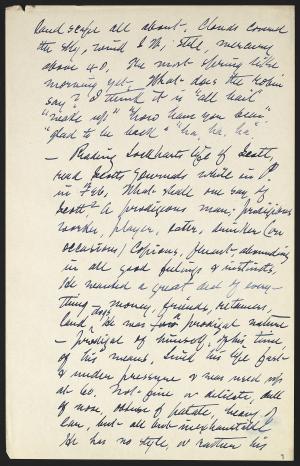 land scape all about. Clouds covered
the sky, wind S.W., still, mercury
above 40. The most spring like
morning yet. What does the robin
say? I think it is "all hail"
"wake up" "how have you been"
"glad to be back" & "ha, ha, ha".
— Reading Lockharts life of Scott,
read Scotts Journals while in P.
in Feb. What shall one say of
Scott? A prodigious man; prodigious
worker, player, eater, drinker (on
occasions) Copious, fluent, abounding
in all good feelings & instincts.
He wanted a great deal of every-
thing — money, friends, retainers,
land, dogs. He was a prodigal nature
— prodigal of himself, of his time,
of his means, lived his life fast
& under pressure & was used up
at 60. Not fine or delicate, dull
of nose, obtuse of palate, heavy of
ear, but all but inexhaustible
He has no style, or rather his